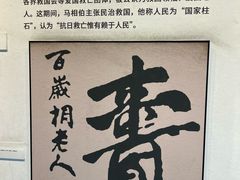 各界救国会等爱国救亡团体，被公认为救国领袖、
人。这期间，马相伯主张民治救国，他称人民为“国家柱
石”，认为“抗日救亡惟有赖于人民”。
壽
百歲相老人